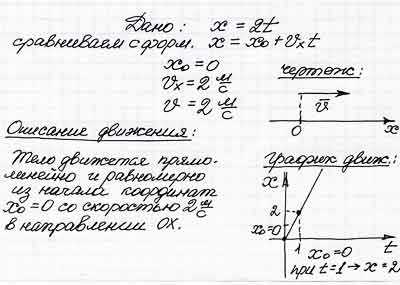 Дано: x = 2t
сравниваем с форм. x = x₀ + vₓt
x₀ = 0
vₓ = 2 м/с
v = 2 м/с
чертёж:
v̅
0 x
Описание движения:
Тело движется прямо-
линейно и равномерно
из начала координат
x₀ = 0 со скоростью 2 м/с
в направлении OX.
График движ:
x
2
x₀=0
1 t
x₀ = 0
при t = 1 → x = 2